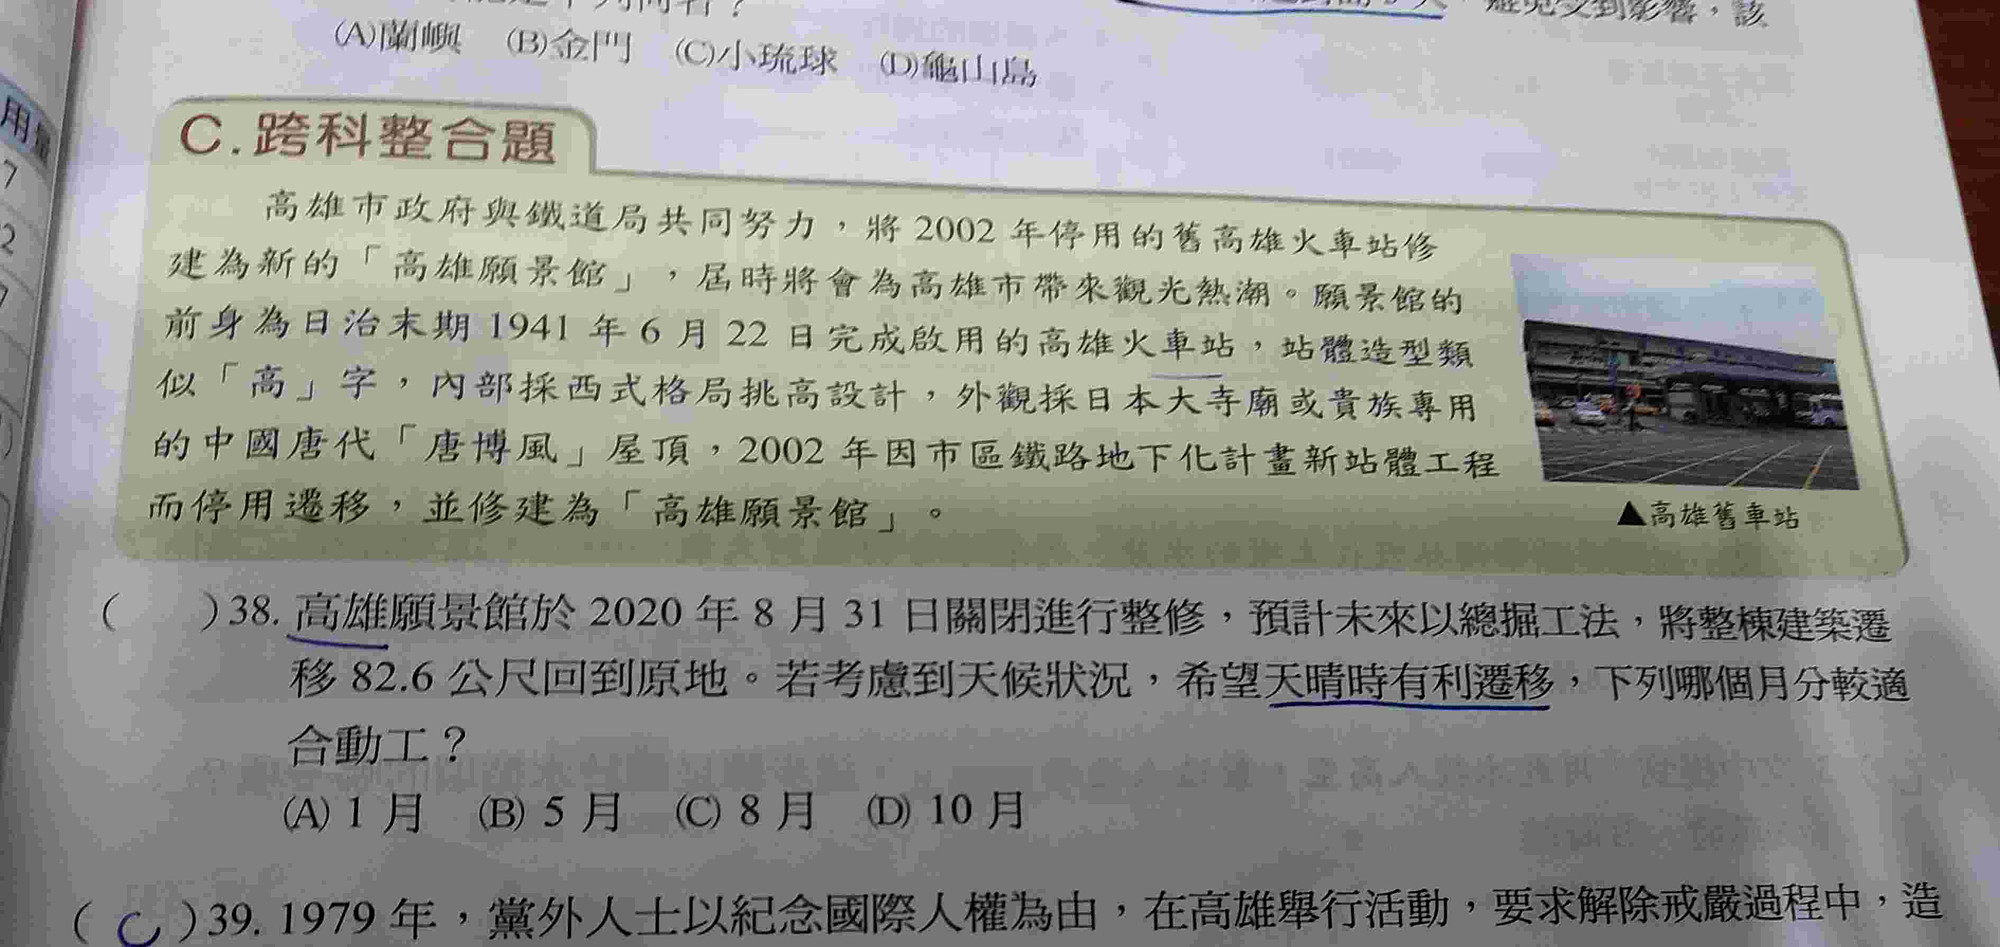 (A)蘭嶼 (B)金門 (C)小琉球 (D)龜山島
避免受到影響，該
用量
7
2
7
C.跨科整合題
高雄市政府與鐵道局共同努力，將 2002 年停用的舊高雄火車站修
建為新的「高雄願景館」，屆時將會為高雄市帶來觀光熱潮。願景館的
前身為日治末期 1941 年 6 月 22 日完成啟用的高雄火車站，站體造型類
似「高」字，內部採西式格局挑高設計，外觀採日本大寺廟或貴族專用
的中國唐代「唐博風」屋頂，2002 年因市區鐵路地下化計畫新站體工程
而停用遷移，並修建為「高雄願景館」。
▲高雄舊車站
( )38. 高雄願景館於 2020 年 8 月 31 日關閉進行整修，預計未來以總掘工法，將整棟建築遷
移 82.6 公尺回到原地。若考慮到天候狀況，希望天晴時有利遷移，下列哪個月分較適
合動工？
(A) 1 月 (B) 5 月 (C) 8 月 (D) 10 月
( C )39. 1979 年，黨外人士以紀念國際人權為由，在高雄舉行活動，要求解除戒嚴過程中，造